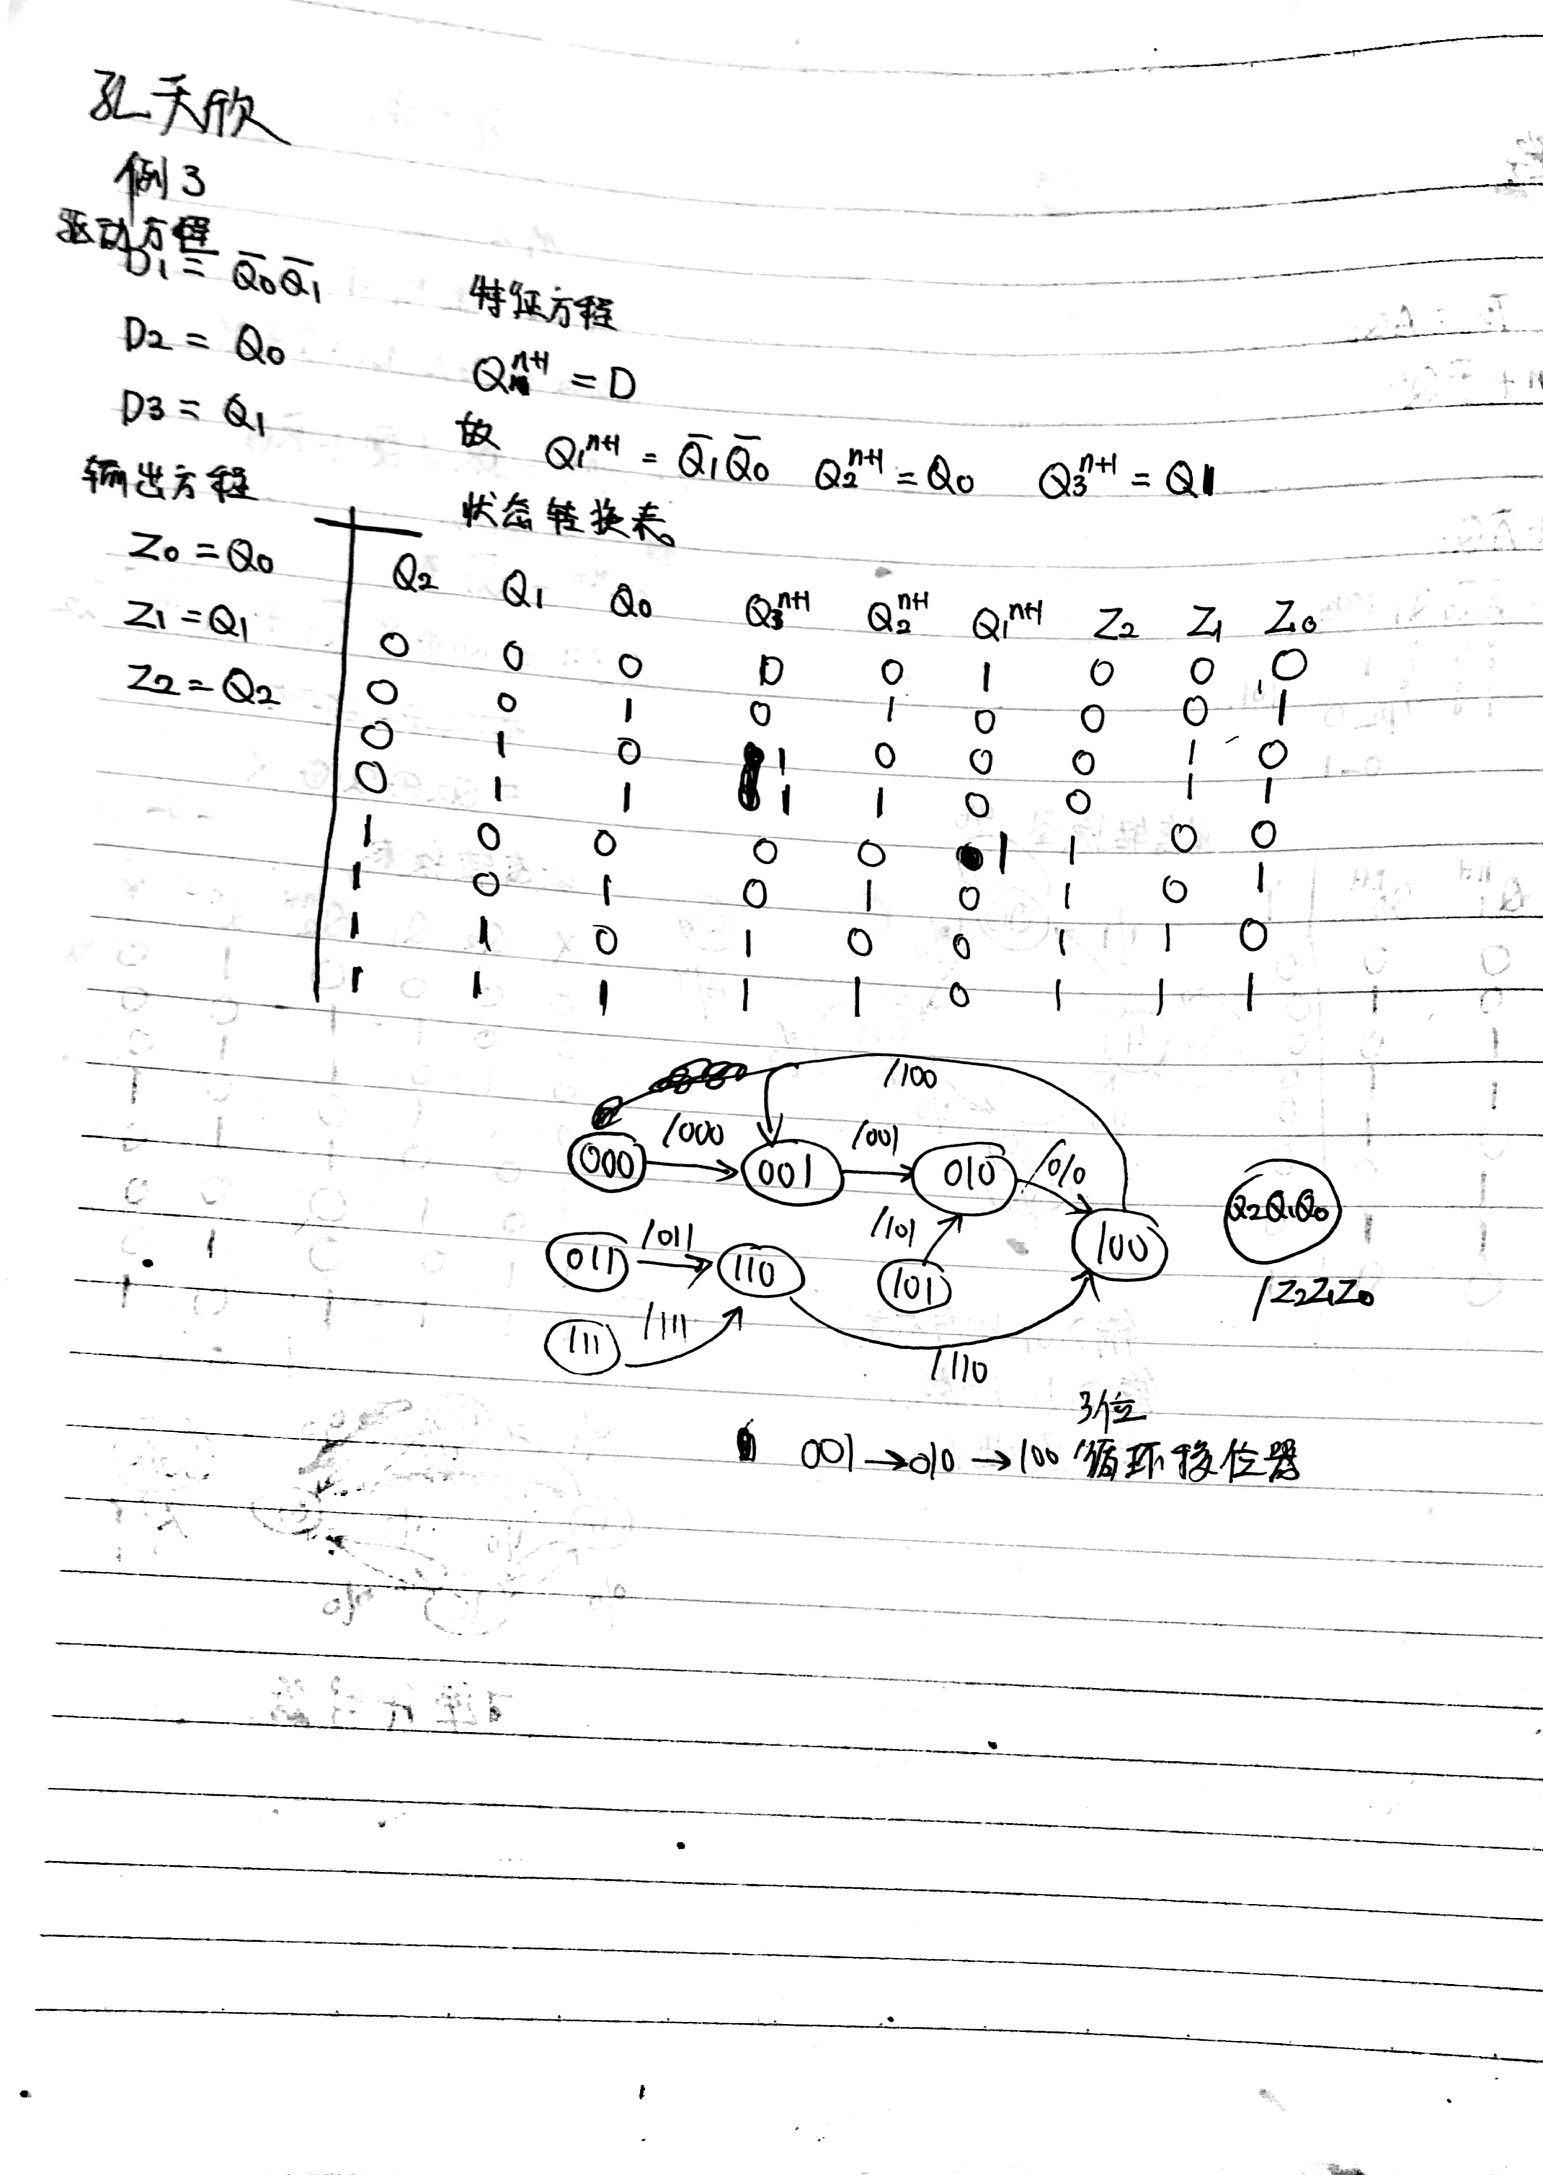 孔天欣
例3
驱动方程
D1 = Q̅0Q̅1
D2 = Q0
D3 = Q1
特征方程
Qⁿ⁺¹ = D
故 Q1ⁿ⁺¹ = Q̅1Q̅0 Q2ⁿ⁺¹ = Q0 Q3ⁿ⁺¹ = Q1
输出方程
Z0 = Q0
Z1 = Q1
Z2 = Q2
状态转换表。
Q2 Q1 Q0 Q3ⁿ⁺¹ Q2ⁿ⁺¹ Q1ⁿ⁺¹ Z2 Z1 Z0
0 0 0 0 0 1 0 0 0
0 0 1 0 1 0 0 0 1
0 1 0 1 0 0 0 1 0
0 1 1 1 1 0 0 1 1
1 0 0 0 0 1 1 0 0
1 0 1 0 1 0 1 0 1
1 1 0 1 0 0 1 1 0
1 1 1 1 1 0 1 1 1
/100
000 /000 001 /001 010 /010 100
Q2Q1Q0
/Z2Z1Z0
011 /011 110 /101 101
111 /111 /110
3位
001→010→100 循环移位器